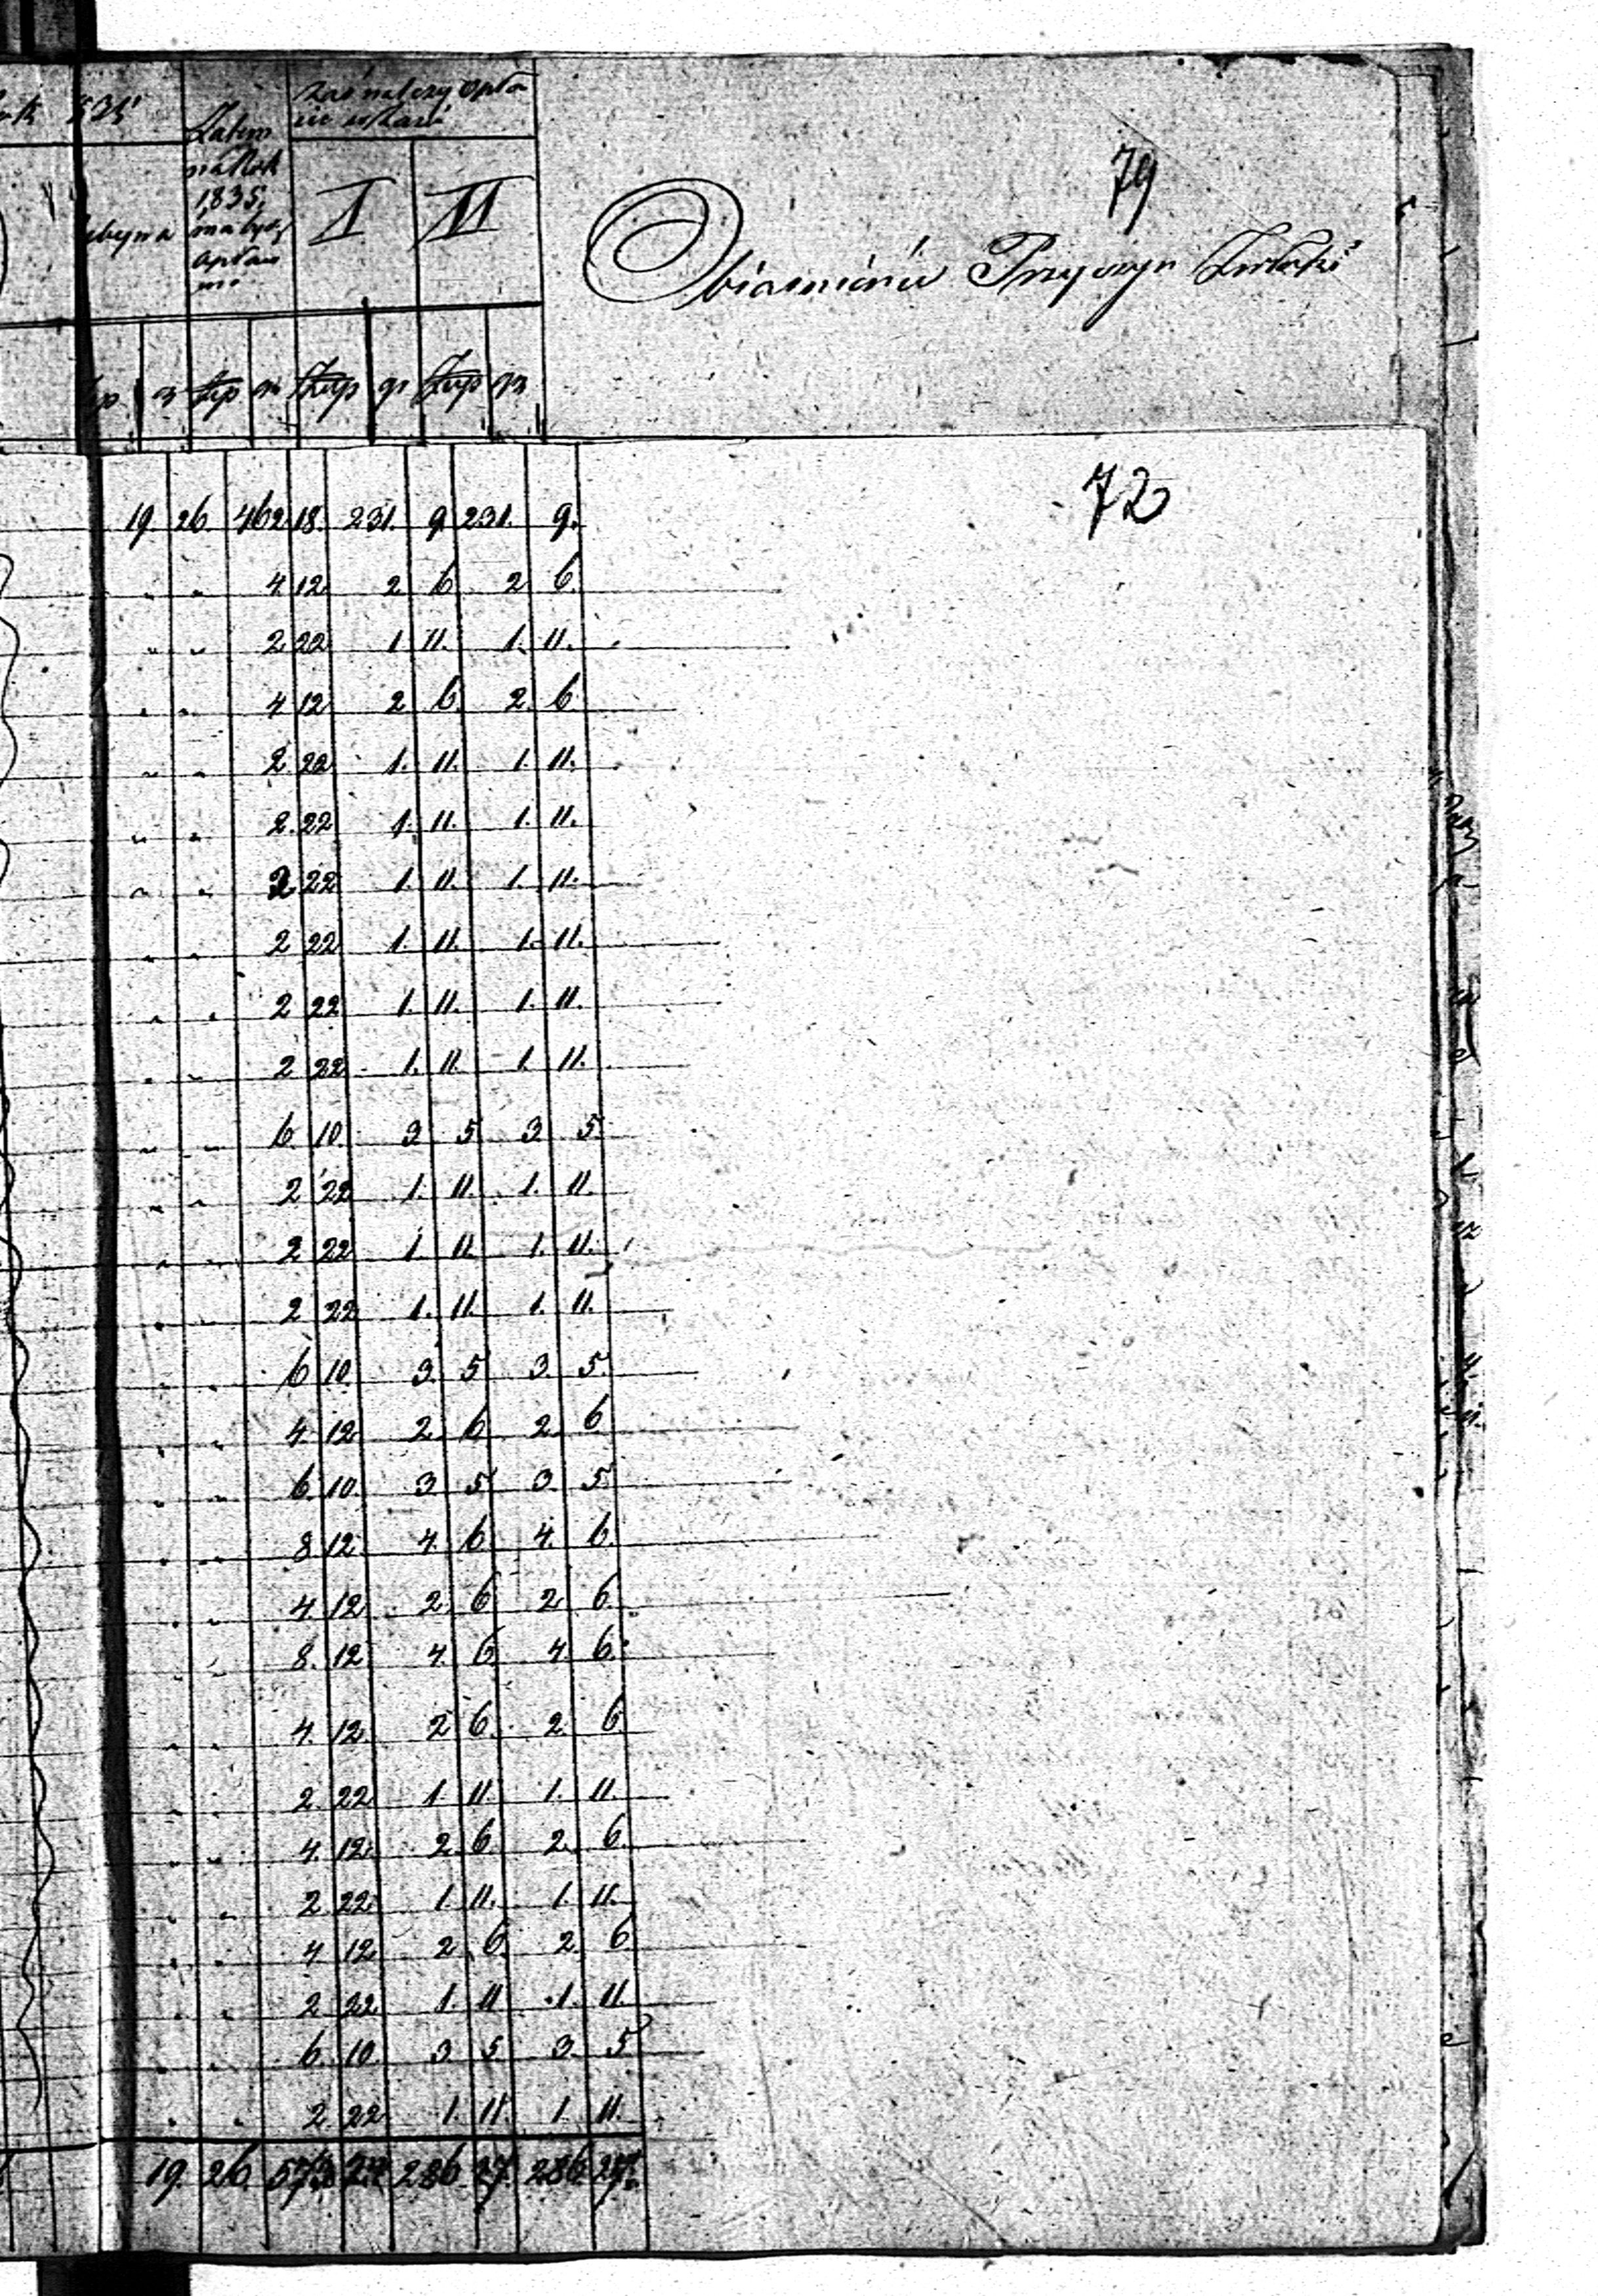 79
Zatem
na Rok
1835
ma być
I II
Obiaśnienie Przyczyn
Złp gr Złp gr Złp gr
72
19. 26. 462 18. 231. 9 231. 9.
„ „ 4 12 2 6 2 6.
„ „ 2 22 1 11. 1. 11.
„ „ 4 12 2 6. 2 6
„ „ 2. 22 1. 11. 1. 11.
„ „ 2. 22 1. 11. 1. 11.
„ „ 2. 22 1. 11. 1. 11.
„ „ 2 22 1. 11. 1. 11.
„ „ 2 22 1. 11. 1. 11.
„ „ 2 22 1. 11. 1. 11.
„ „ 6. 10. 3 5 3. 5.
„ „ 2 22 1. 11. 1. 11.
„ „ 2 22 1. 11. 1. 11.
„ „ 2 22 1. 11. 1. 11.
„ „ 6 10. 3. 5 3. 5.
„ „ 4. 12 2 6 2. 6
„ „ 6. 10. 3 5 3. 5.
„ „ 8. 12. 4. 6 4. 6.
„ „ 4. 12 2 6 2 6.
„ „ 8. 12. 4. 6 4 6.
„ „ 4. 12. 2 6. 2. 6
„ „ 2. 22 1. 11. 1. 11.
„ „ 4. 12. 2. 6 2. 6.
„ „ 2 22 1. 11. 1. 11.
„ „ 4 12 2 6. 2. 6
„ „ 2 22 1. 11 1. 11.
„ „ 6. 10. 3. 5. 3. 5
„ „ 2 22 1. 11. 1. 11.
19. 26. 573 24 286 27. 286 27.